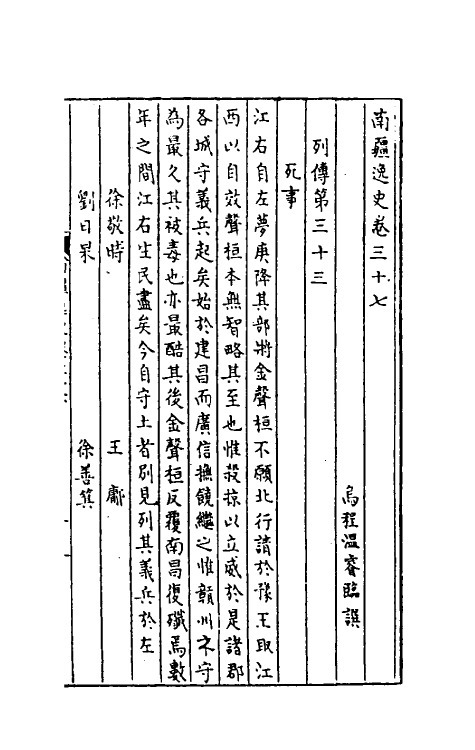 南疆逸史卷三十七
烏程溫睿臨譔
列傳第三十三
死事
江右自左夢庚降其部將金聲桓不願北行請於豫王取江
西以自效聲桓本無智略其至也惟殺掠以立威於是諸郡
各城守義兵起矣始於建昌而廣信撫饒繼之惟贛州不守
為最久其被毒也亦最酷其後金聲桓反覆南昌復殲焉數
年之間江右生民盡矣今自守土者別見列其義兵於左
徐敬時 王
劉日杲 徐善箕